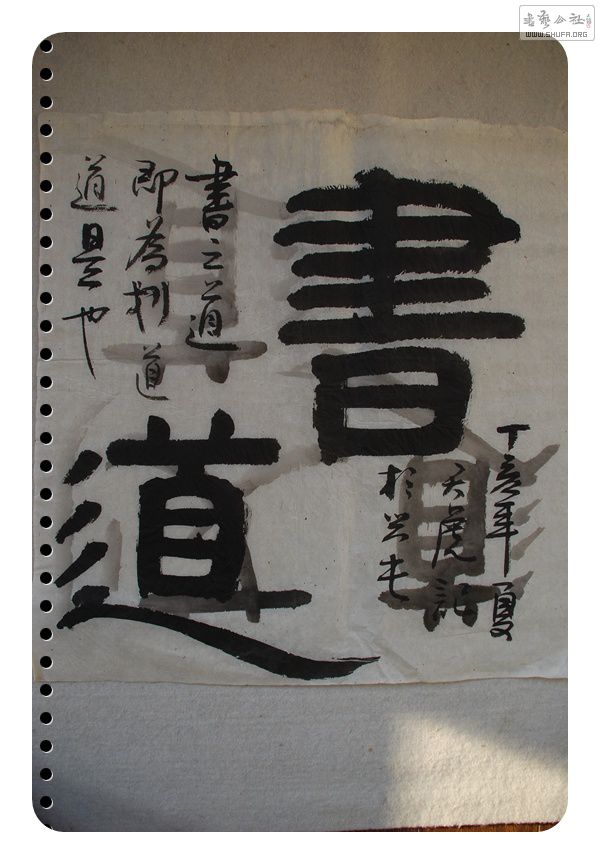 書藝公社
WWW.SHUFA.ORG
書
道
丁亥年夏
天虎記
於
書之道
即為道
道是也